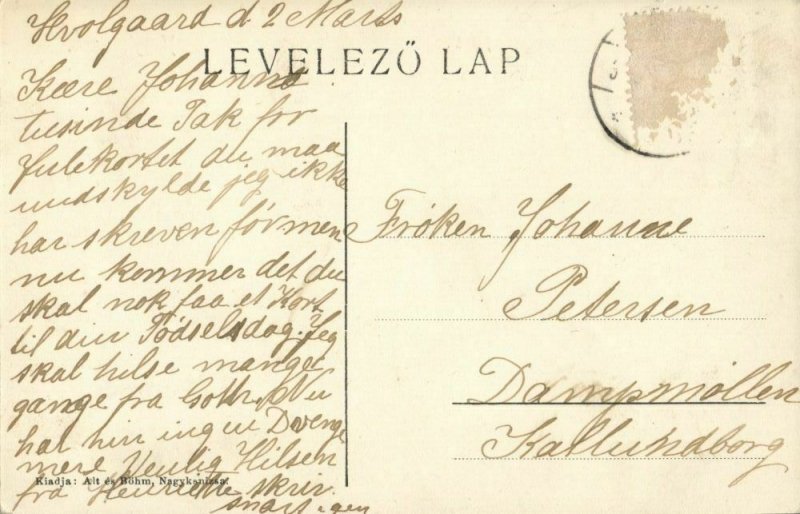 Hvolgaard d 2 Marts
LEVELEZŐ LAP
Kære Johanne
tusinde Tak for
Julekortet du maa
undskylde jeg ikke
har skreven før men
nu kommer det du
skal nok faa et Kort
til din Fødselsdag. Jeg
skal hilse mange
gange fra Goth. Nu
har hun ingen Drenge
mere Venlig Hilsen
fra Henriette skriv
snart igen
Kiadja: Alt és Böhm, Nagykanizsa.
Frøken Johanne
Petersen
Dampmøllen
Kallundborg